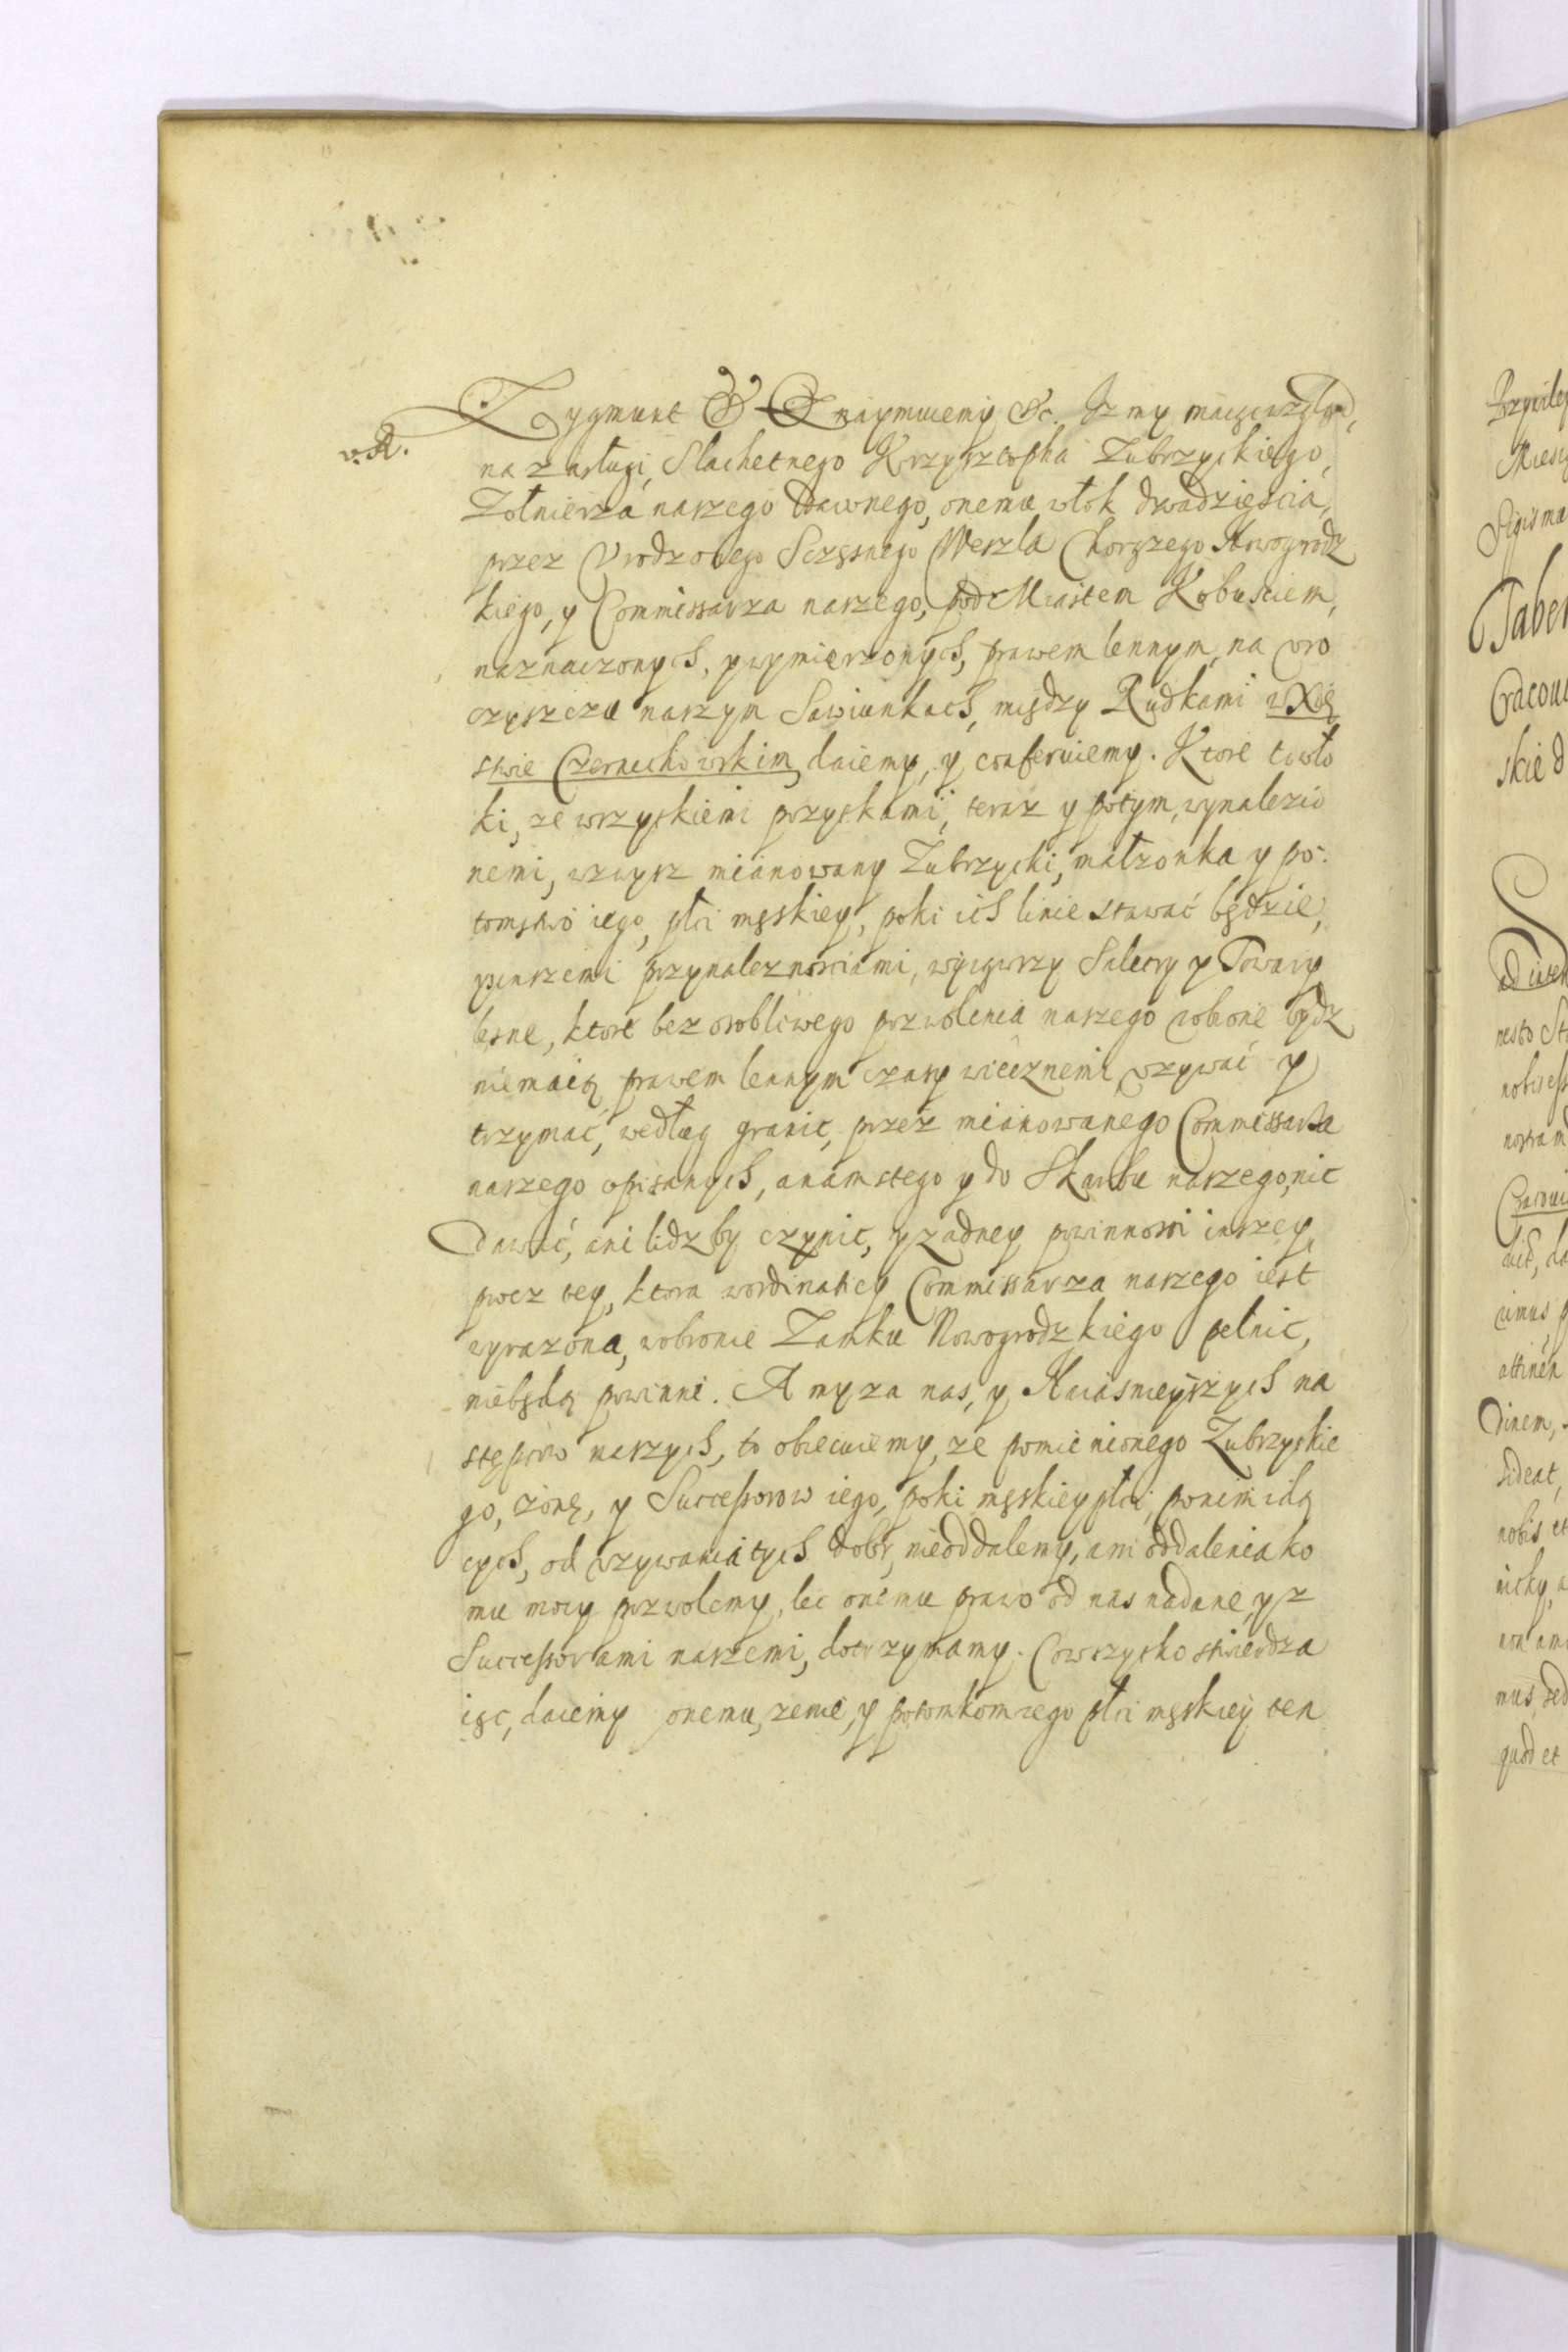 Zygmunt & Oznaymuiemy &c. Iz my maiąc wzgląd,
v. A.
na zasługi, Slachetnego Krzysztopha Zubrzyckiego,
Zołnierza naszego dawnego, onemu włok dwadzieścia,
przez Vrodzonego Sczęsnego Weszla Chorązego Nowogrodz
kiego, y Commissarza naszego, pod Miastem Kobusciem,
naznaczonych, y wymierzonych, prawem lennym, na vro
czyszczu naszym Sawiunkach, między Rudkami w Xię
stwie Czernichowskim, daiemy, y conferuiemy. Ktore to wło
ki, ze wszystkiemi pozytkami, teraz y potym, wynalezio
nemi, wzwysz mianowany Zubrzycki, małzonka y po
tomstwo iego, płci męskiey, poki ich linie stawać będzie,
y inszemi przynaleznosciami, wyiąwszy Saletry y Towary
lesne, ktore bez osobliwego pozwolenia naszego robione bydz
niemaią prawem lennym czasy wiecznemi vzywać y
trzymać, według granic, przez mianowanego Commissarza
naszego opisanych, a nam s tego y do Skarbu naszego, nic
dawać, ani lidzby czynic, y zadney powinnosci inszey,
procz tey, ktora w ordinatiey Commissarza naszego iest
wyrazona, w obronie Zamku Nowogrodzkiego pełnic,
niebędą powinni. A my za nas, y Naiasnieyszych na
stępcow naszych, to obiecuiemy, ze pomienionego Zubrzyckie
go, zonę, y Successorow iego, poki męskiey płci, po nim idą
cych, od vzywania tych dobr, nieoddalemy, ani oddalenia ko
mu mocy pozwolemy, lec onemu prawo od nas nadane, y z
Successorami naszemi, dotrzymamy. Co wszystko stwierdza
iąc, daiemy onemu, zenie, y potomkom iego płci męskiey ten